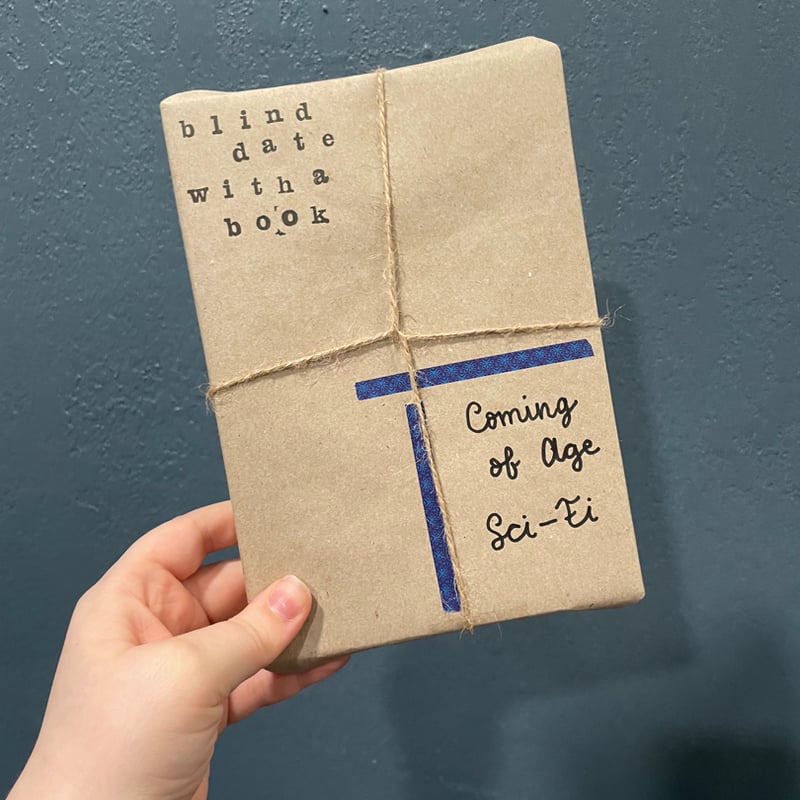 blind
date
with a
book
Coming
of Age
Sci-Fi